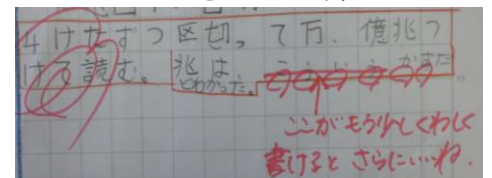 4けたずつ区切って万、億兆つ
けて読む。兆は
とわかった。
ここがもう少しくわしく
書けるとさらにいいね.